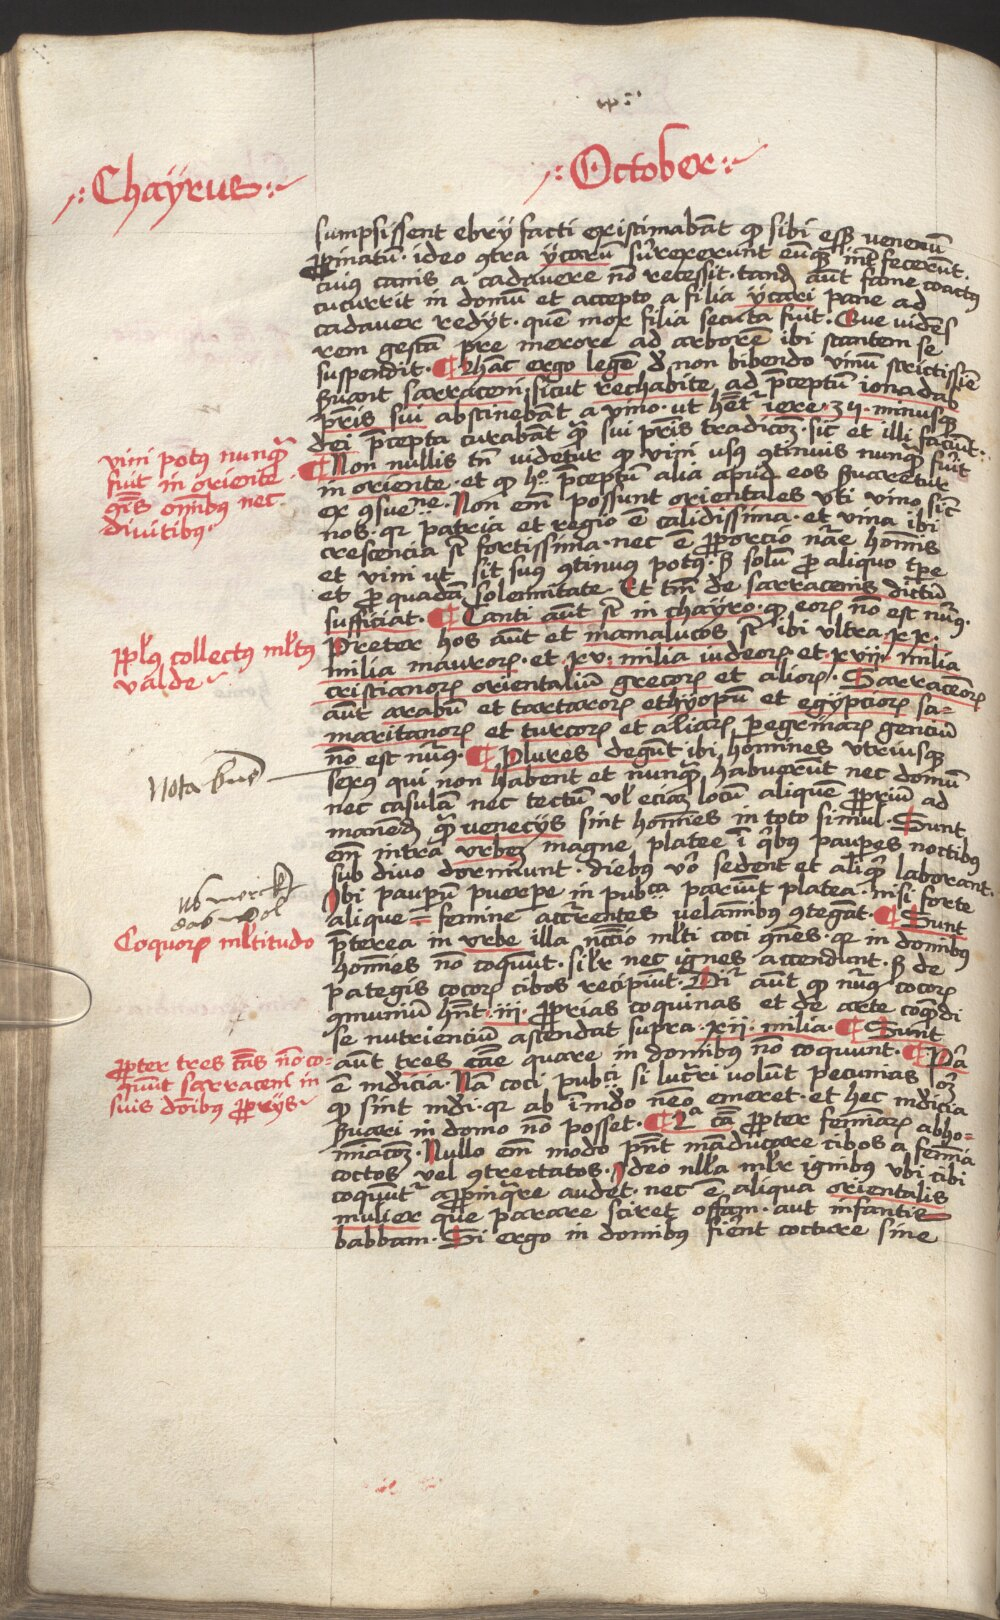 Chayrus
October
sumpsissent ebrÿ facti existimabāt qꝫ sibi esset venenū
ꝓpinatū · ideo ꝯtra ÿcarū surrexerunt eūqꝫ int̄fecerūt ·
cuius canis a cadavere nō recessit · tandē aūt fame coactꝰ
cucurrit in domū et accepto a filia ÿcari pane ad
cadaver redÿt · quē mox filia secuta fuit · Que vidēs
rem gestā pre merore ad arborē ibi stantem se
suspendit · ¶ Hāc ergo legē d̄ non bibendo vinū strictissīe
ẜuant sarraceni sicut rechabite ad p̄ceptū ionadab
pr̄is sui abstinebāt a vino · ut hēt̄ iere · 35 · minusqꝫ
dei p̄cepta curabāt qꝫ sui pr̄is tradicōꝫ · sic et illi faciūt ·
¶ Non nullis tn̄ videtur qꝫ vini usꝰ ꝯtinuus nunqꝫ fuīt
in oriente · et qꝫ hº p̄ceptū alia apud eos ẜuaretur
ex ꝯsue̅ne · Non em̄ possunt orientales vti vino sic̄
nos · qꝛ patria et regio ē calidissima · et vina ibi
crescencia sūt fortissima · nec ē ꝓporcio nr̄e hominis
et vini ut sit suꝰ ꝯtinuus potꝰ · ẜ solū ꝓ aliquo tp̄e
et ꝓ quadā solennitate · Et tm̄ de sarracenis dictū
sufficiat · ¶ Tanti aūt sūt in chayro · qꝫ eoꝝ nō est nūꝰ ·
Preter hos aūt et mamalucos sūt ibi vltra · xx ·
milia mauroꝝ · et · xv · milia iudeoꝝ · et · xvii · milia
cristianoꝝ orientaliū grecoꝝ et alioꝝ · Sarracēoꝝ
aūt arabū et tartaroꝝ ethÿopū et egÿpcioꝝ sa=
maritanoꝝ et turcoꝝ et aliaꝝ peregrinaꝝ genciū
nō est nūꝰ · ¶ Plures degūt ibi homines vtriusqꝫ
sexꝰ qui non habent et nunqꝫ habuerūt nec domū
nec casulā nec tectū vl̄ eciā locū aliquē ꝓpriū ad
manend̄ qꝫ venecÿs sint homīes in toto simul · Sunt
em̄ intra vrbeꝫ magne platee ī qͥbꝰ paupes noctibꝰ
sub divo dormiunt · diebus vº sedent et aliqͥ laborant ·
Ibi paupū puerpe in pubca pariūt platea · nisi forte
alique = femine accurrentes velaminibꝰ ꝯtegāt · ¶ Sunt
p̄terea in vrbe illa n̄c̄ō ml̄ti coci om̄es · qꝛ in domibꝰ
homīes nō coquūt · sil̄r nec ignes accendunt · ẜ de
pategis cocoꝝ cibos recipiūt · Dr̄ aūt qꝫ nūꝰ cocoꝝ
ꝯmuniū hn̄t · iii · ꝓprias coquinas et de arte coq̄ndi
se nutrienciū ascendat supra · xii · milia · ¶ Sunt
aūt tres cāe quare in domibꝰ nō coquunt · ¶ Pª
ē indicia · Nā coci pubci si luc̄ri volūt pecunias oꝫ
qꝫ sint mdi · qꝛ ab īmdo nēo emeret · et hec mdicia
ẜuari in domo nō posset · ¶ 2ª cā ꝓpter feminaꝝ abho=
minacōꝫ · Nullo em̄ modo pn̄t māducare cibos a femina
coctos vel ꝯtrectatos · Ideo nll̄a ml̄r ignibus vbi cibi
coquūtʳ apꝓpinq̄re audet · nec ē aliqua orientalis
mulier que parare sciret offam · aut infantis
babbam · Si ergo in domibꝰ fiēnt cocture sine
vini potꝰ nunqꝫ
fuit in oriente
om̄ibus nec
divitibus
Pꝑlꝰ collectꝰ ml̄tꝰ
valde
Nota bene
Nb merckt
das wol
Coquoꝝ ml̄titudo
ꝓpter tres cās nō co=
quūt sarraceni in
suis domibꝰ ꝓprÿs